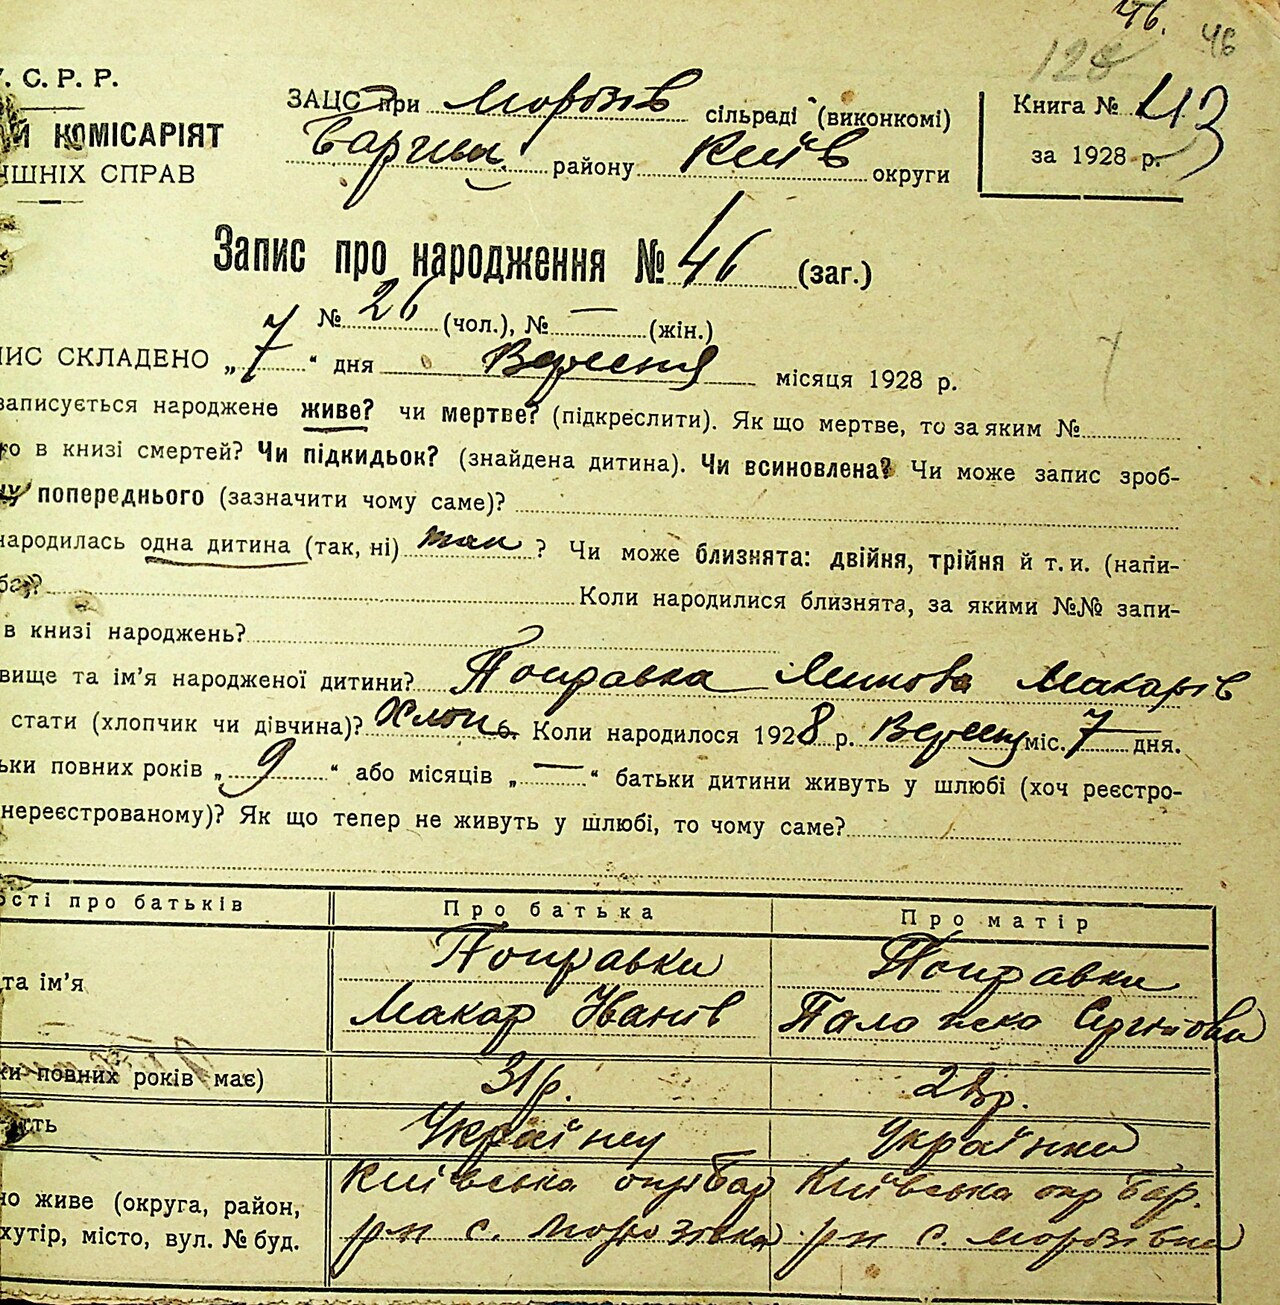 46. 46
128
У. С. Р. Р.
ЗАЦС при Морозів сільраді (виконкомі)
Книга № 43
Й КОМІСАРІЯТ
Баришп. району Київ округи
за 1928 р.
ІШНІХ СПРАВ
Запис про народження № 46 (заг.)
№ 26 (чол.), № — (жін.)
ПИС СКЛАДЕНО „ 7 “ дня Вересня місяця 1928 р.
записується народжене живе? чи мертве? (підкреслити). Як що мертве, то за яким №
го в книзі смертей? Чи підкидьок? (знайдена дитина). Чи всиновлена? Чи може запис зроб-
ну попереднього (зазначити чому саме)?
народилась одна дитина (так, ні) так ? Чи може близнята: двійня, трійня й т. и. (напи-
ба)? Коли народилися близнята, за якими №№ запи-
в книзі народжень?
вище та ім'я народженої дитини? Поправка Макарів
стати (хлопчик чи дівчина)? Хлоп. Коли народилося 1928 р. Вересня міс. 7 дня.
ьки повних років „ 9 “ або місяців „ — “ батьки дитини живуть у шлюбі (хоч реєстро-
нереєстрованому)? Як що тепер не живуть у шлюбі, то чому саме?
ості про батьків Про батька Про матір
Поправки Поправки
та ім'я Макар Іванів Палажка Сергіїова
ки повних років має) 31 р. 28 р.
ість Українец Українка
Київська окр Бар Київська окр Бар.
но живе (округа, район, рн с. Морозівка рн с. Морозівка
хутір, місто, вул. № буд.